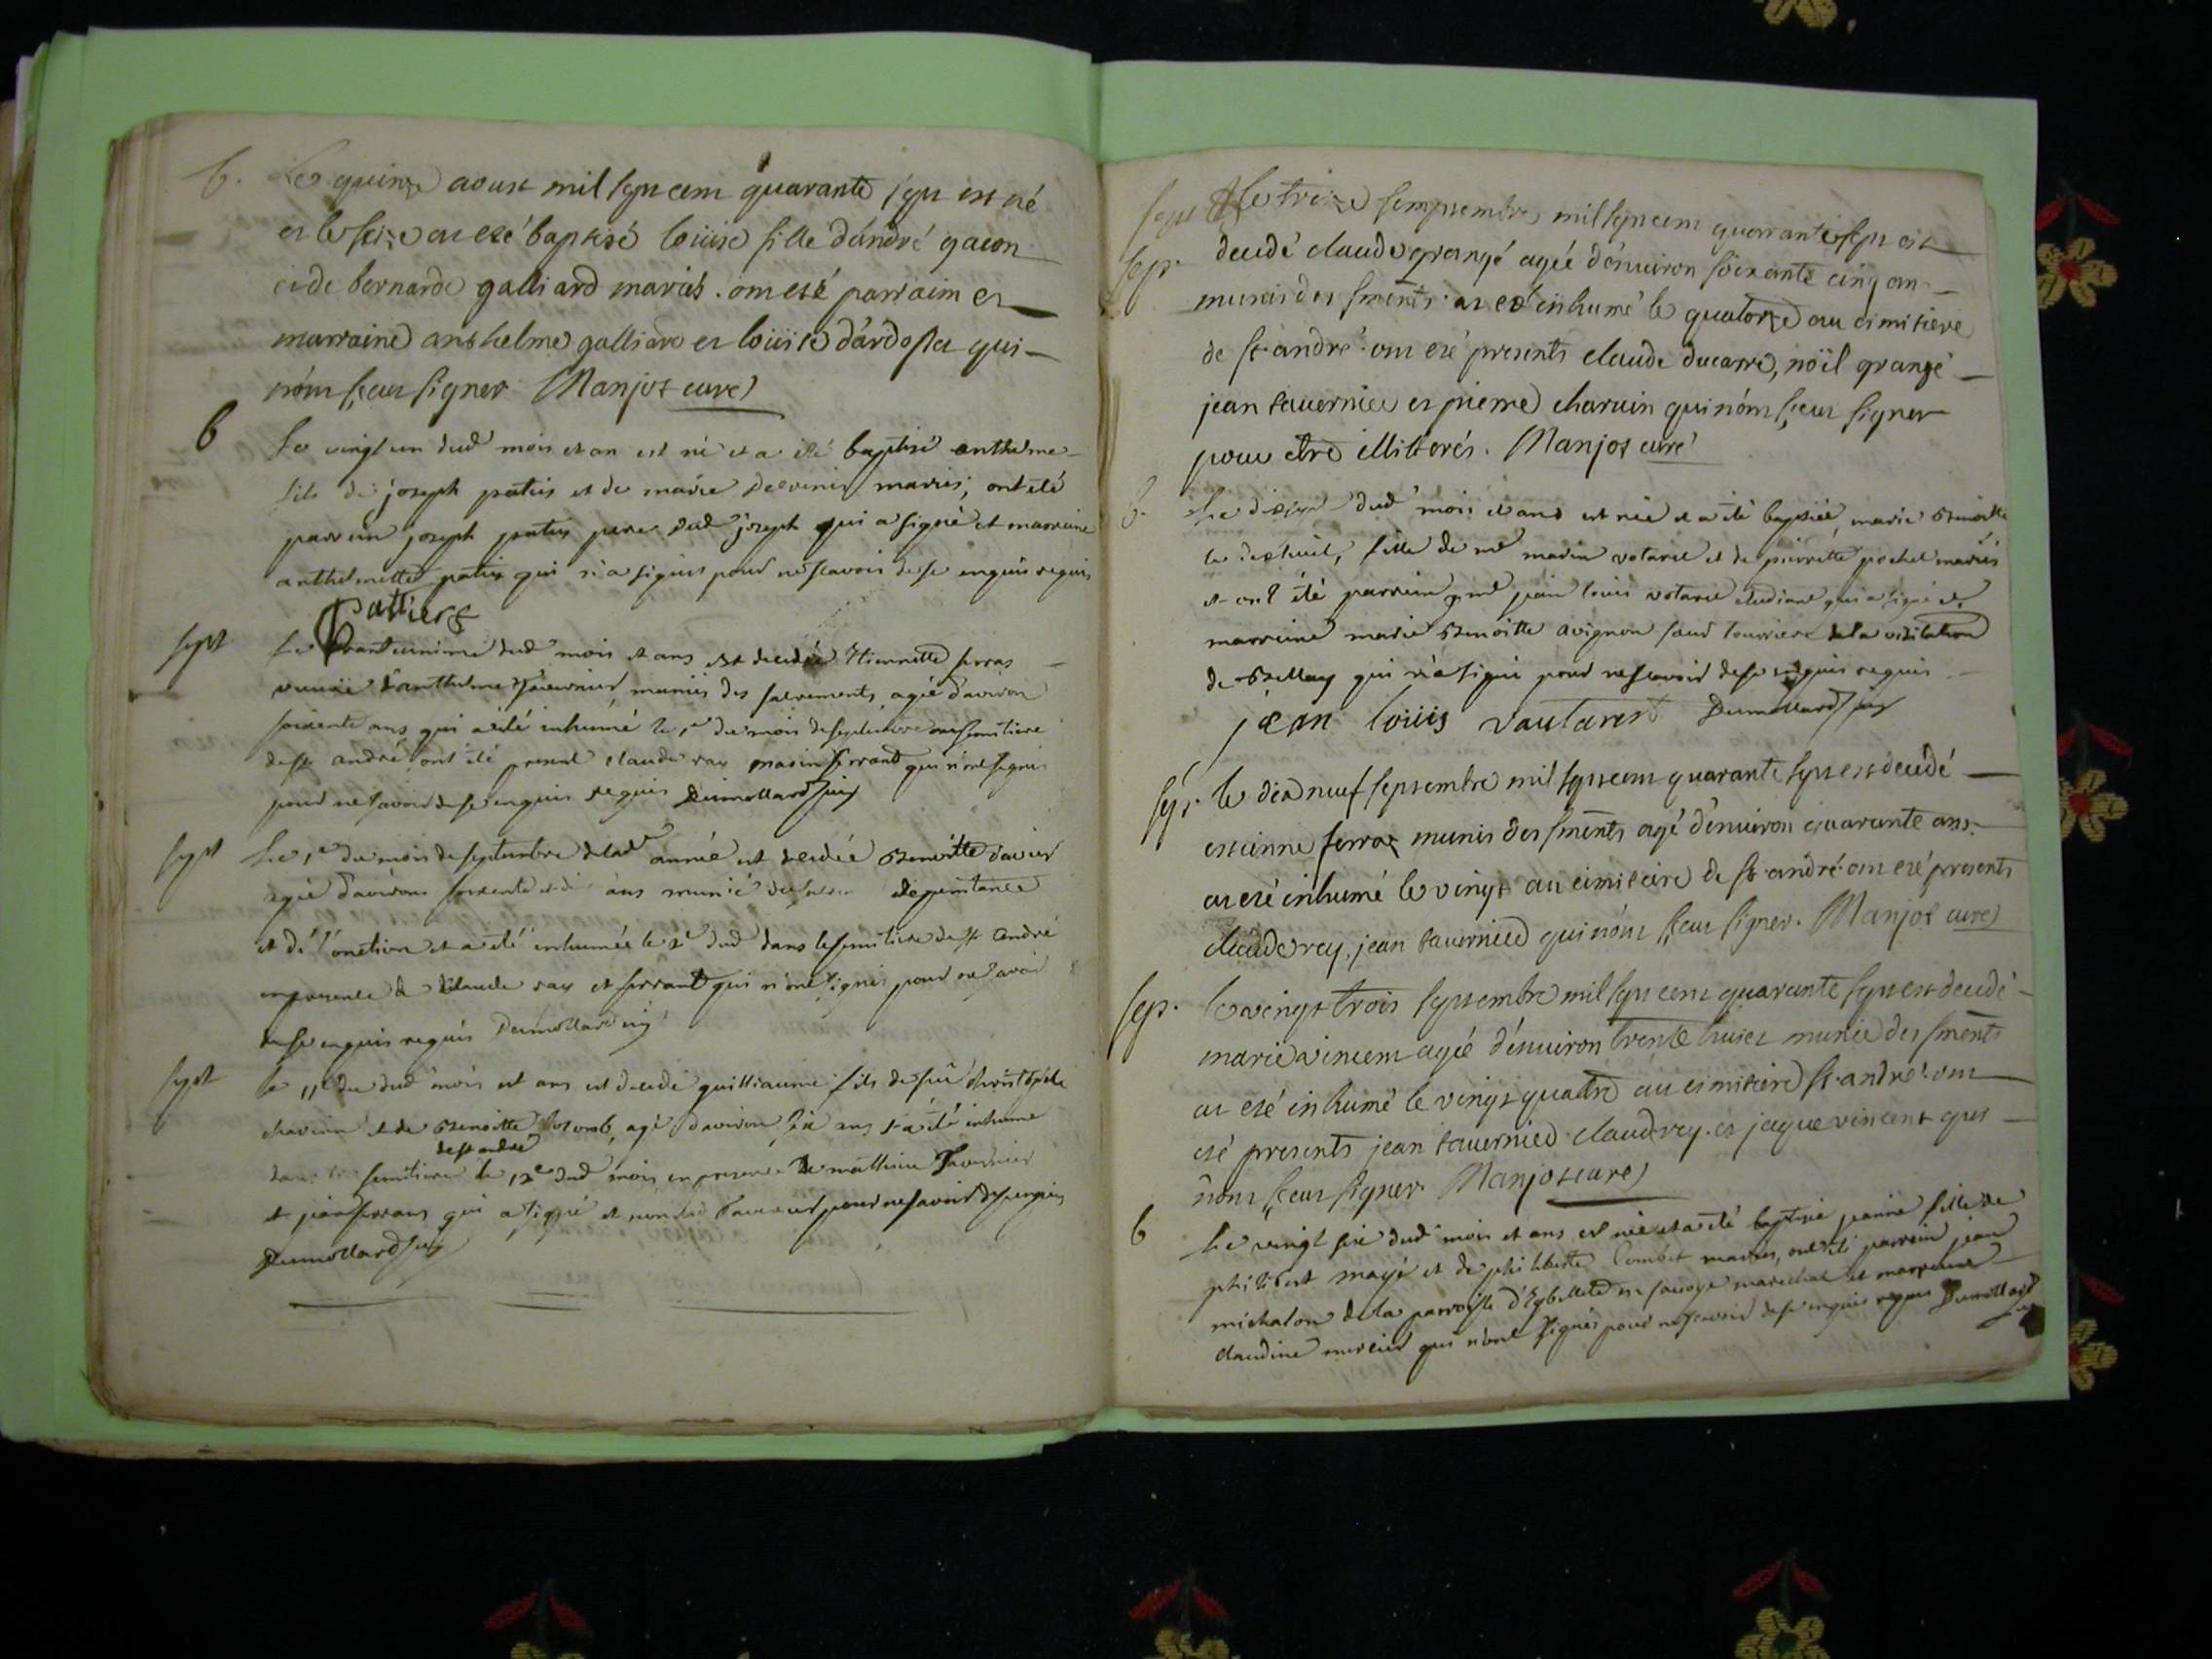 b. Le quinze aoust mil sept cent quarante sept est né
et le seize at esté baptisé loüise fille d'andré gacon
et de bernarde galliard mariés. ont esté parrain et
marraine anthelme galliard et loüise dardosset qui
n'ont sçeut signer Manjot curé
b Le vingt un dud mois et an est né et a été baptisé anthelme
fils de joseph patus et de marie mariés, ont été
parrein joseph patus pere dud joseph qui a signé et marreine
anthelmette patus qui n'a signé pour ne scavoir de ce enquis requis
Pattiers
sept Le dud mois et ans est decedée Etiennette ferras
veuve d'anthelme Tavernier, munie des sacrements, agée d'aviron
soixente ans qui a été inhumé le 1er du mois de septembre au semitiere
de st andré ont été present claude ray marin ferrand qui n'ont signés
pour ne savoir de ce enquis requis Dumollard
sept Le 1er du mois de septembre de lad année est decedée Benoitte davier
agée d'avirons soixente et di ans munie de penitance
et de l'onction et a été inhumée le 2e dud dans le semitiere de st andré
en presence de Claude ray et ferrand qui n'ont signés pour ne savoir
de ce enquis requis Dumollard
sept le 11e du dud mois et ans est decedé guilliaume fils de feu christophle
charvin et de Benoitte agé d'aviron six ans et a été inhumé
de st andré
dans le semitiere le 12e dud mois en presence de mathieu Tavernier
et jean ferrand qui a signé et non led Tavernier pour ne savoir de ce enquis
Dumollard
sept Le treize semptembre mil sept cent quarrante sept est
sep. decedé claude grangé agée d'enuiron soixante cinq an
munis des sments at eté inhumé le quatorze au cimitiere
de st. andré. ont eté presents claude ducarre, nöil grangé
jean tauernier et pierre charuin qui n'ont sceut signer
pour etre illiterés. Manjot curé
b. Le dud mois et ans est née et a été baptisée marie Benoitte
le fille de me marin votaret et de pierrette pochet mariés
et ont été parrein me jean louis votaret etudiant qui a signé et
marreine marie Benoitte avignon sœur tourriere de la visitation
de Belley qui n'a signé pour ne scavoir de ce enquis requis
jean loüis vautaret Dumollard
sep. le dix neuf septembre mil sept cent quarante sept est decedé
estienne ferrax munis des sments agé d'enuiron quarante ans.
at eté inhumé le vingt au cimiteire de st. andré. ont eté presents
claude rey, jean tauernier qui n'ont sceut signer. Manjot curé
sep. le vingt trois septembre mil sept cent quarante sept est decedé
marie vincent agée d'enuiron trente huict munie des sments
at eté inhumé le vingt quatre au cimitiere st. andré. ont
eté presents jean tauernier claude rey. et jaque vincent qui
n'ont sceut signer. Manjot curé
b Le vingt six dud mois et ans est née et a été baptisée jeanne fille de
philibert magé et de philiberte Combet mariés, ont été parrein jean
michalon de la parroisse d'Egbellette en savoye marechal et marreine
claudine mercier qui n'ont signés pour ne scavoir de ce enquis requis Dumollard